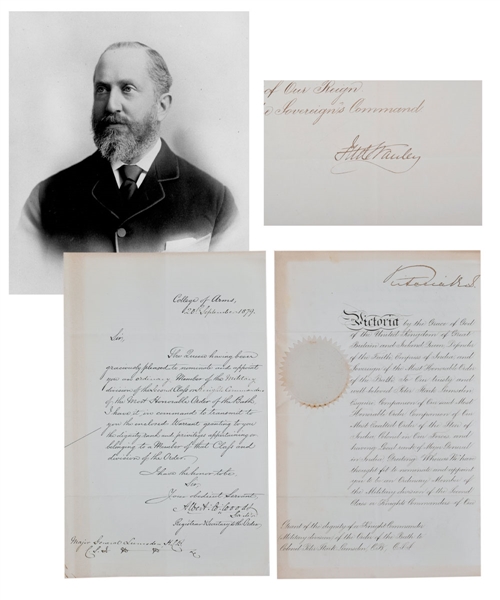 of Our Reign
Sovereign's Command
College of Arms,
September 1879.
Sir,
The Queen having been
graciously pleased to nominate and appoint
you an ordinary Member of the Military
division of the Second Class or Knights Commanders
of the Most Honorable Order of the Bath,
I have it in command to transmit to
you the enclosed Warrant granting to you
the dignity, rank and privileges appertaining or
belonging to a Member of that Class and
division of the Order.
I have the honor to be
Sir,
Your obedient Servant,
Albert W Woods
Garter
Registrar & Secretary to the Order.
Major General Lumsden
Victoria R.I.
Victoria by the Grace of God
of the United Kingdom of Great
Britain and Ireland Queen, Defender
of the Faith, Empress of India and
Sovereign of the Most Honorable Order
of the Bath To Our trusty and
well beloved Peter Stark Lumsden
Esquire Companion of Our said Most
Honorable Order Companion of Our
Most Exalted Order of the Star of
India Colonel in Our Army and
having local rank of Major General
in India Greeting Whereas We have
thought fit to nominate and appoint
you to be an Ordinary Member of
the Military division of the Second
Class or Knights Commanders of Our
Grant of the dignity of a Knight Commander
Military division of the Order of the Bath to
Colonel Peter Stark Lumsden C.B., C.S.I.